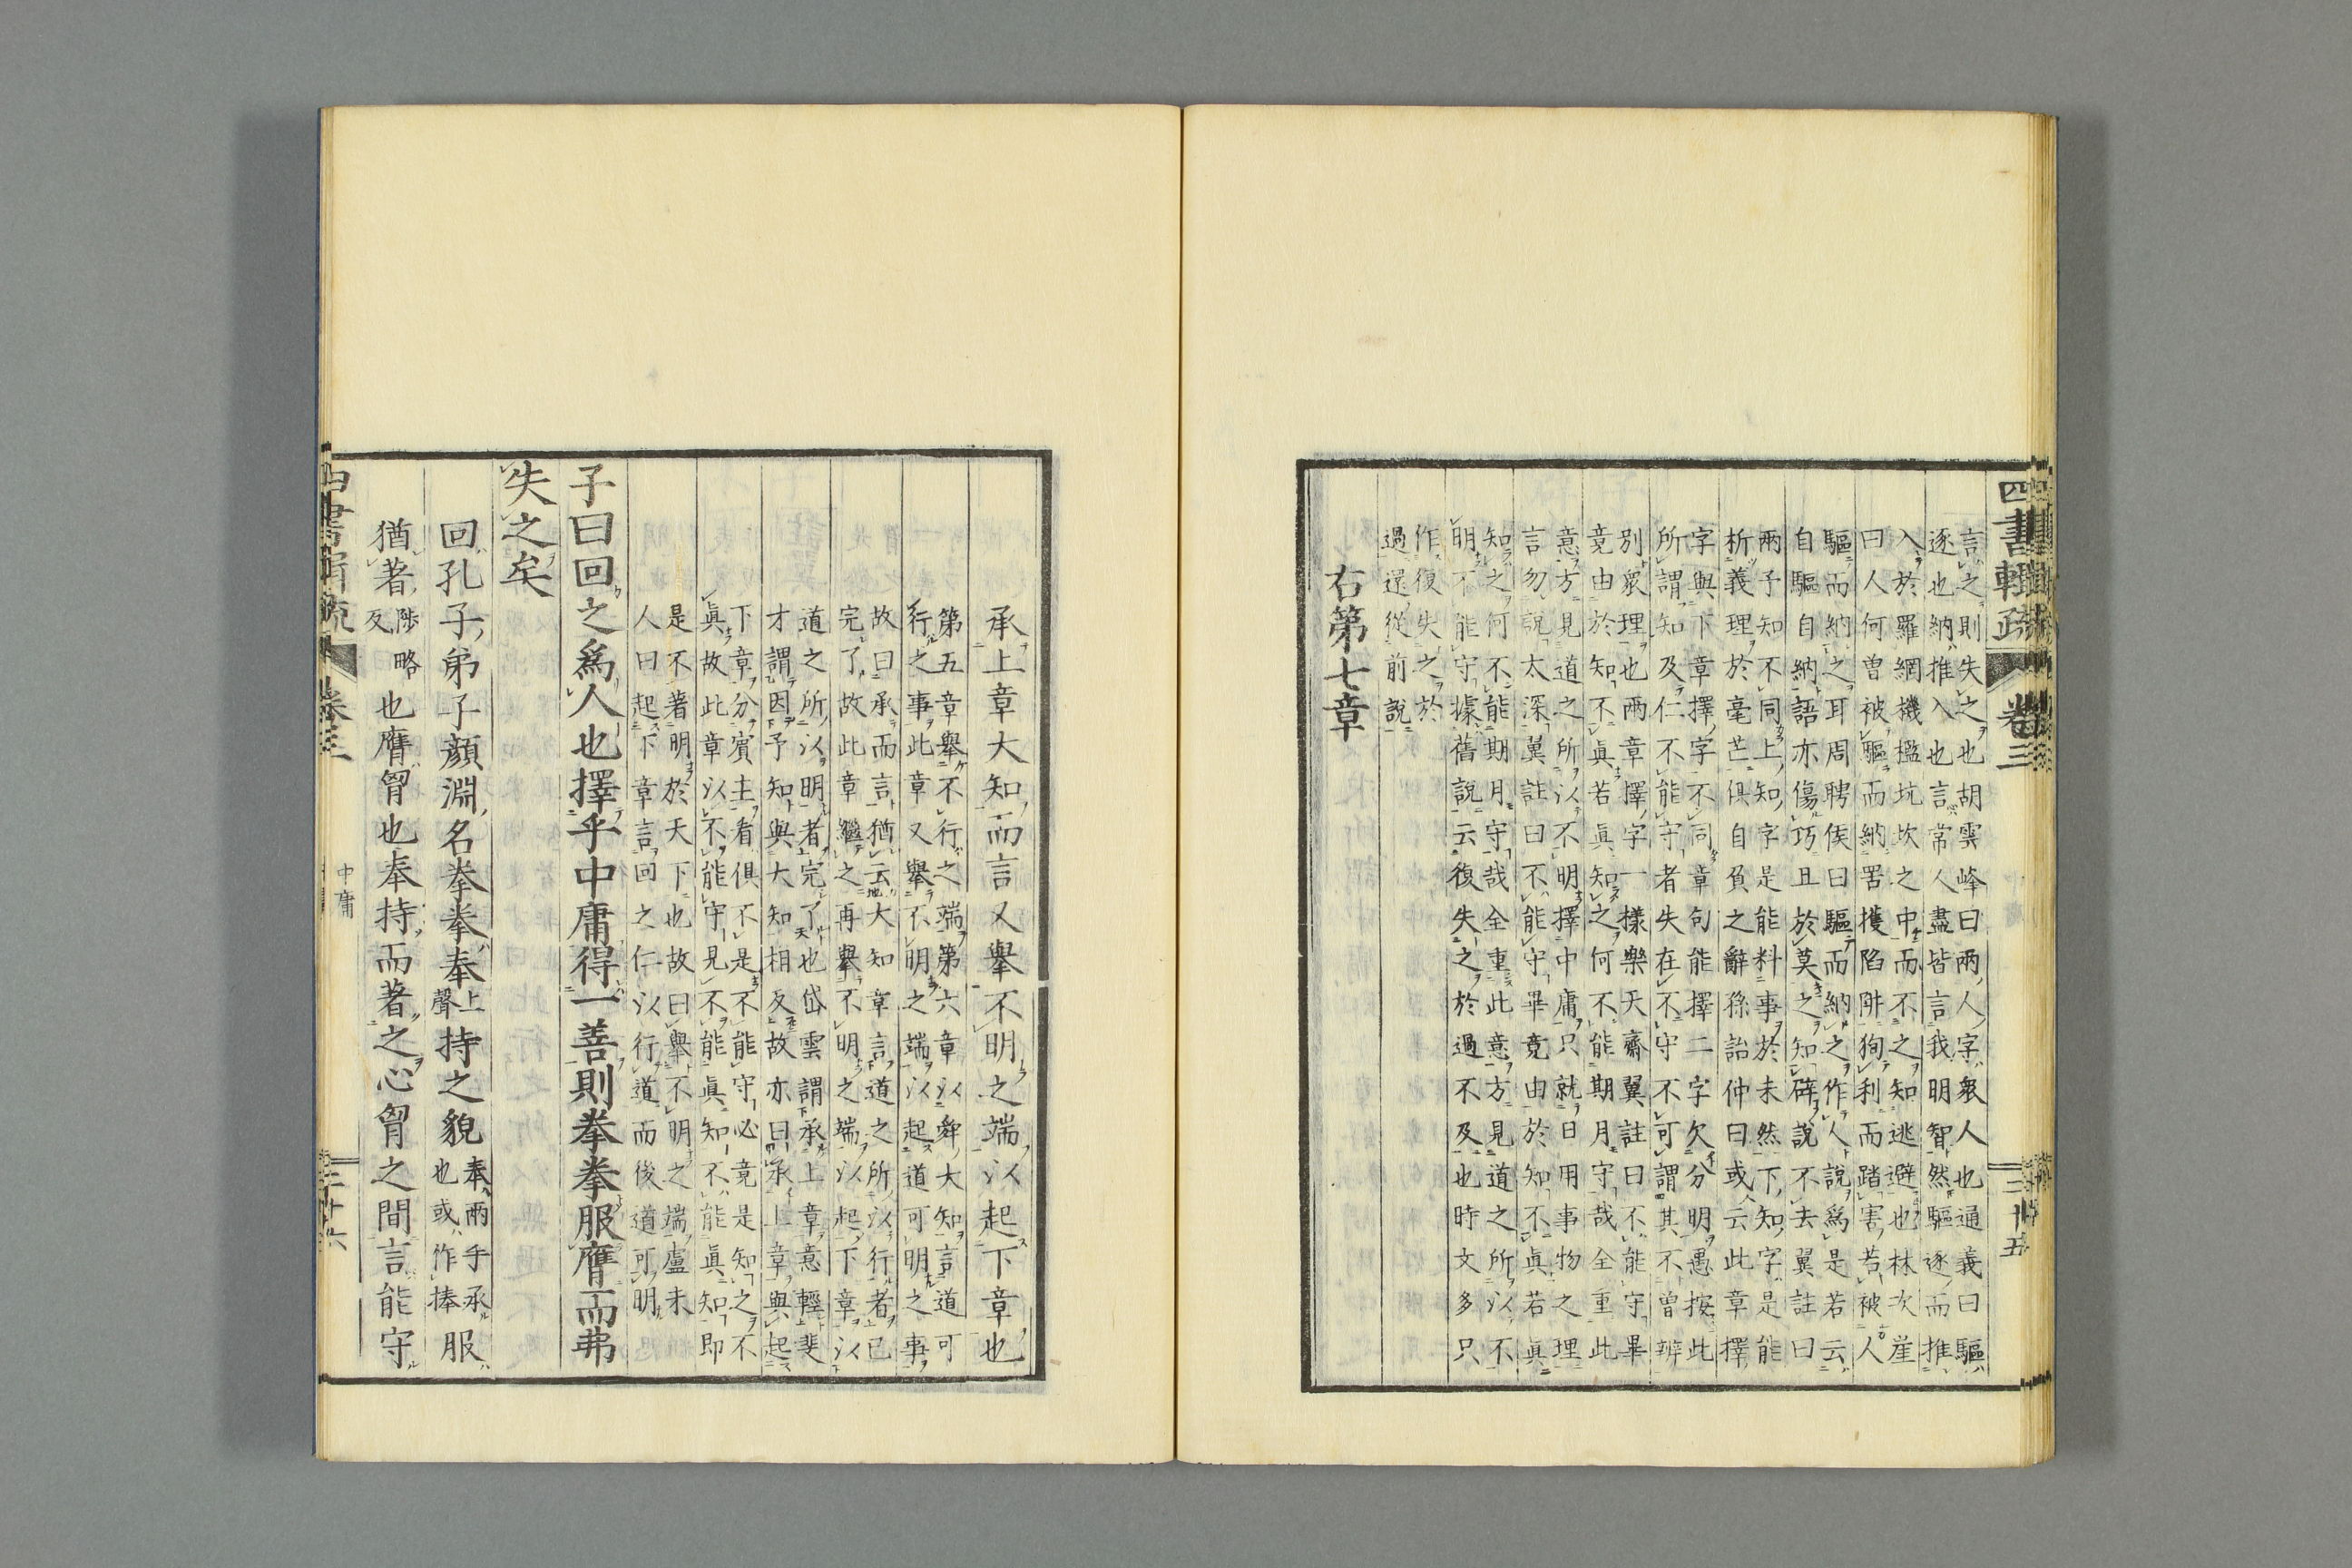 四書輯疏 卷三 三十五
言之則失之也胡雲峰曰兩人字衆人也通義曰驅
逐也納推入也言常人盡皆言我明智然驅逐而推
入於羅網機檻坑坎之中而不之知逃避也林次崖
曰人何曾被驅而納罟擭陷阱狥利而踏害若被人
驅而納之耳周聘侯曰驅而納之作人說爲是若云
自驅自納語亦傷巧且於莫之知礙說不去翼註曰
兩予知不同上知字是能料事於未然下知字是能
析義理於毫芒俱自負之辭孫詒仲曰或云此章擇
字與下章擇字不同章句能擇二字欠分明愚按此
所謂知及仁不能守者失在不守不可謂其不曾辨
別衆理也兩章擇字一樣樂天齋翼註曰不能守畢
竟由於知不眞若眞知之何不能期月守哉全重此
意方見道之所以不明擇中庸只就日用事物之理
言勿說太深冀註曰不能守畢竟由於知不眞若眞
知之何不能期月守哉全重此意方見道之所以不
明不能守據舊說云復失之於過不及也時文多只
作復失之於
過還從前說
右第七章
承上章大知而言又舉不明之端以起下章也
第五章舉不行之端第六章以舜大知言道可
行之事此章又舉不明之端以起道可明之事
故曰承而言猶云地大知章言道之所以行者已
完了故此章繼之再舉不明之端以起下章以
道之所以明者完了也岱雲謂承上章意輕斐
才謂因予知與大知相反故亦曰承上章與起
下章分賓主看俱不是不能守必竟是知之不
眞故此章以不能守見不能眞知不能眞知即
是不著明於天下也故曰舉不明之端盧未
人曰起下章言回之仁以行道而後道可明
子曰回之爲人也擇乎中庸得一善則拳拳服膺而弗
失之矣
回孔子弟子顏淵名拳拳奉上聲持之貌奉兩手承也或作捧服
猶著陟略反也膺胷也奉持而著之心胷之間言能守
四書輯疏 卷三 中庸 三十六